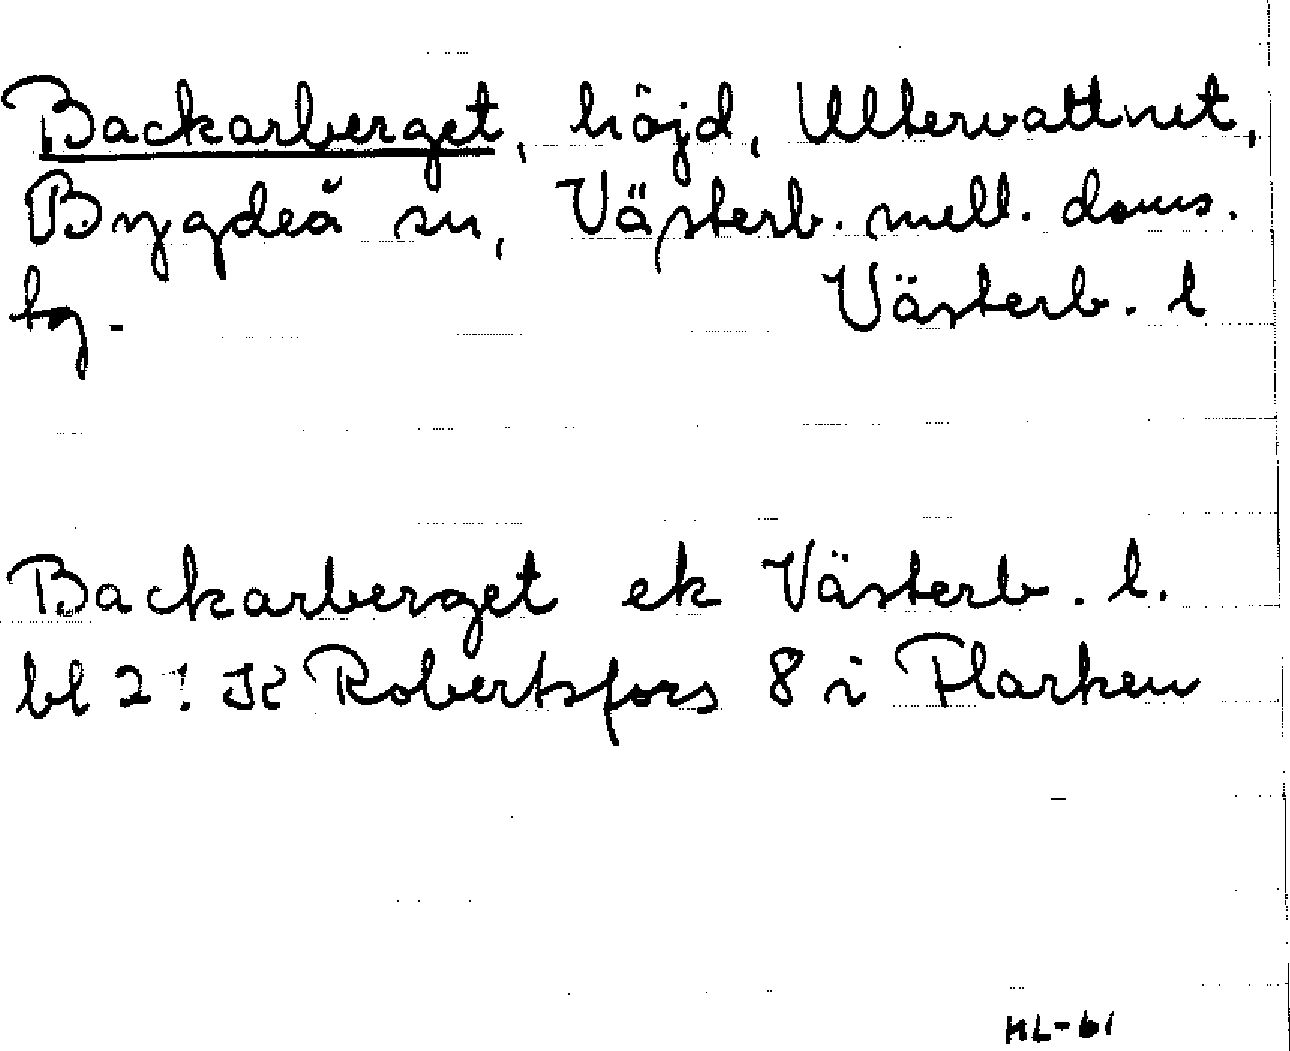 Backarberget, höjd, Ultervattnet,
Bygdeå sn, Västerb. mell. doms.
tg. Västerb. l
Backarberget ek Västerb. l.
bl 21 Robertsfors 8 i Flarken
HL-61